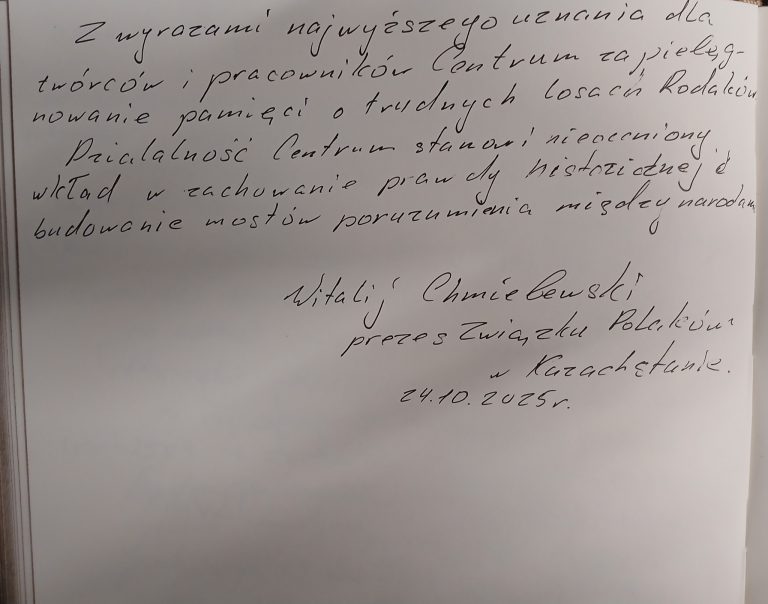 Z wyrazami najwyższego uznania dla
twórców i pracowników Centrum za pielęg-
nowanie pamięci o trudnych losach Rodaków
Działalność Centrum stanowi nieoceniony
wkład w zachowanie prawdy historicznej i
budowanie mostów porozumienia między narodam
Witalij Chmielewski
prezes Związku Polaków
w Kazachstanie.
24.10.2025r.